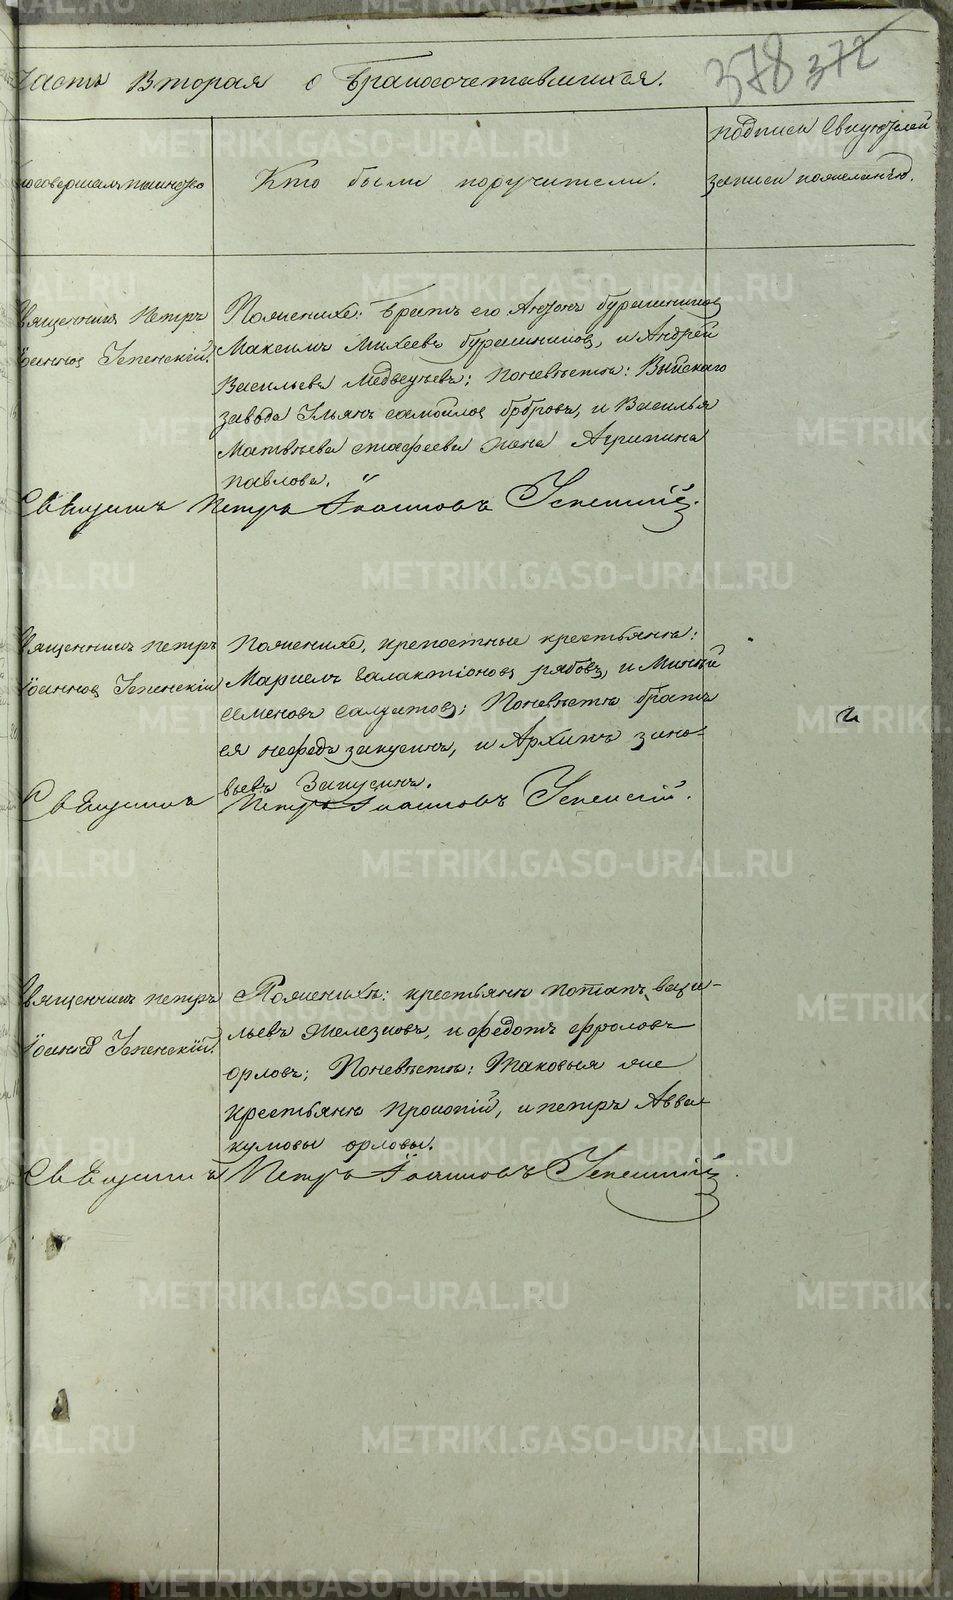 Часть Вторая о бракосочетавшихся.
378 372
Кто совершалъ таинство
Кто были поручители.
подписи Свидѣтелей
записи пожеланію.
Священникъ Петръ
Іоанновъ Успенскій.
Поженихе: братъ его Антонъ бурашниковъ
Максимъ Михеевъ бурашниковъ, и Андрей
Васильевъ Медведевъ; Поневѣсте: Выйскаго
завода Ульянъ Самойловъ бобровъ, и Василья
Матвѣева стафеева жена Агрипина
павлова.
Свящѣнникъ Петръ Іоанновъ Успенскій.
Священникъ петръ
Іоанновъ Успенскій
Поженихе, крепостные крестьяна:
Маркелъ Галактіоновъ рябовъ, и Минѣй
семеновъ салдатовъ; Поневѣсте братъ
ея нефедъ закусинъ, и Архипъ зино-
вьевъ Закусинъ.
Свящѣнникъ Петръ Іоанновъ Успенскій.
Священникъ петръ
Іоанновъ Успенскій.
Поженихе: крестьяна потапъ васи-
льевъ железновъ, и федотъ фроловъ
орловъ; Поневѣсте: таковыя же
крестьяна прокопій, и петръ Авва-
кумовы орловы.
Свящѣнникъ Петръ Іоанновъ Успенскій
METRIKI.GASO-URAL.RU